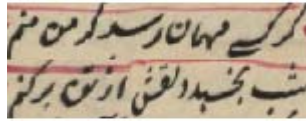 کر کسے مهمان رسد کر من منم
شب بخسبد دلقش از تن برکنم